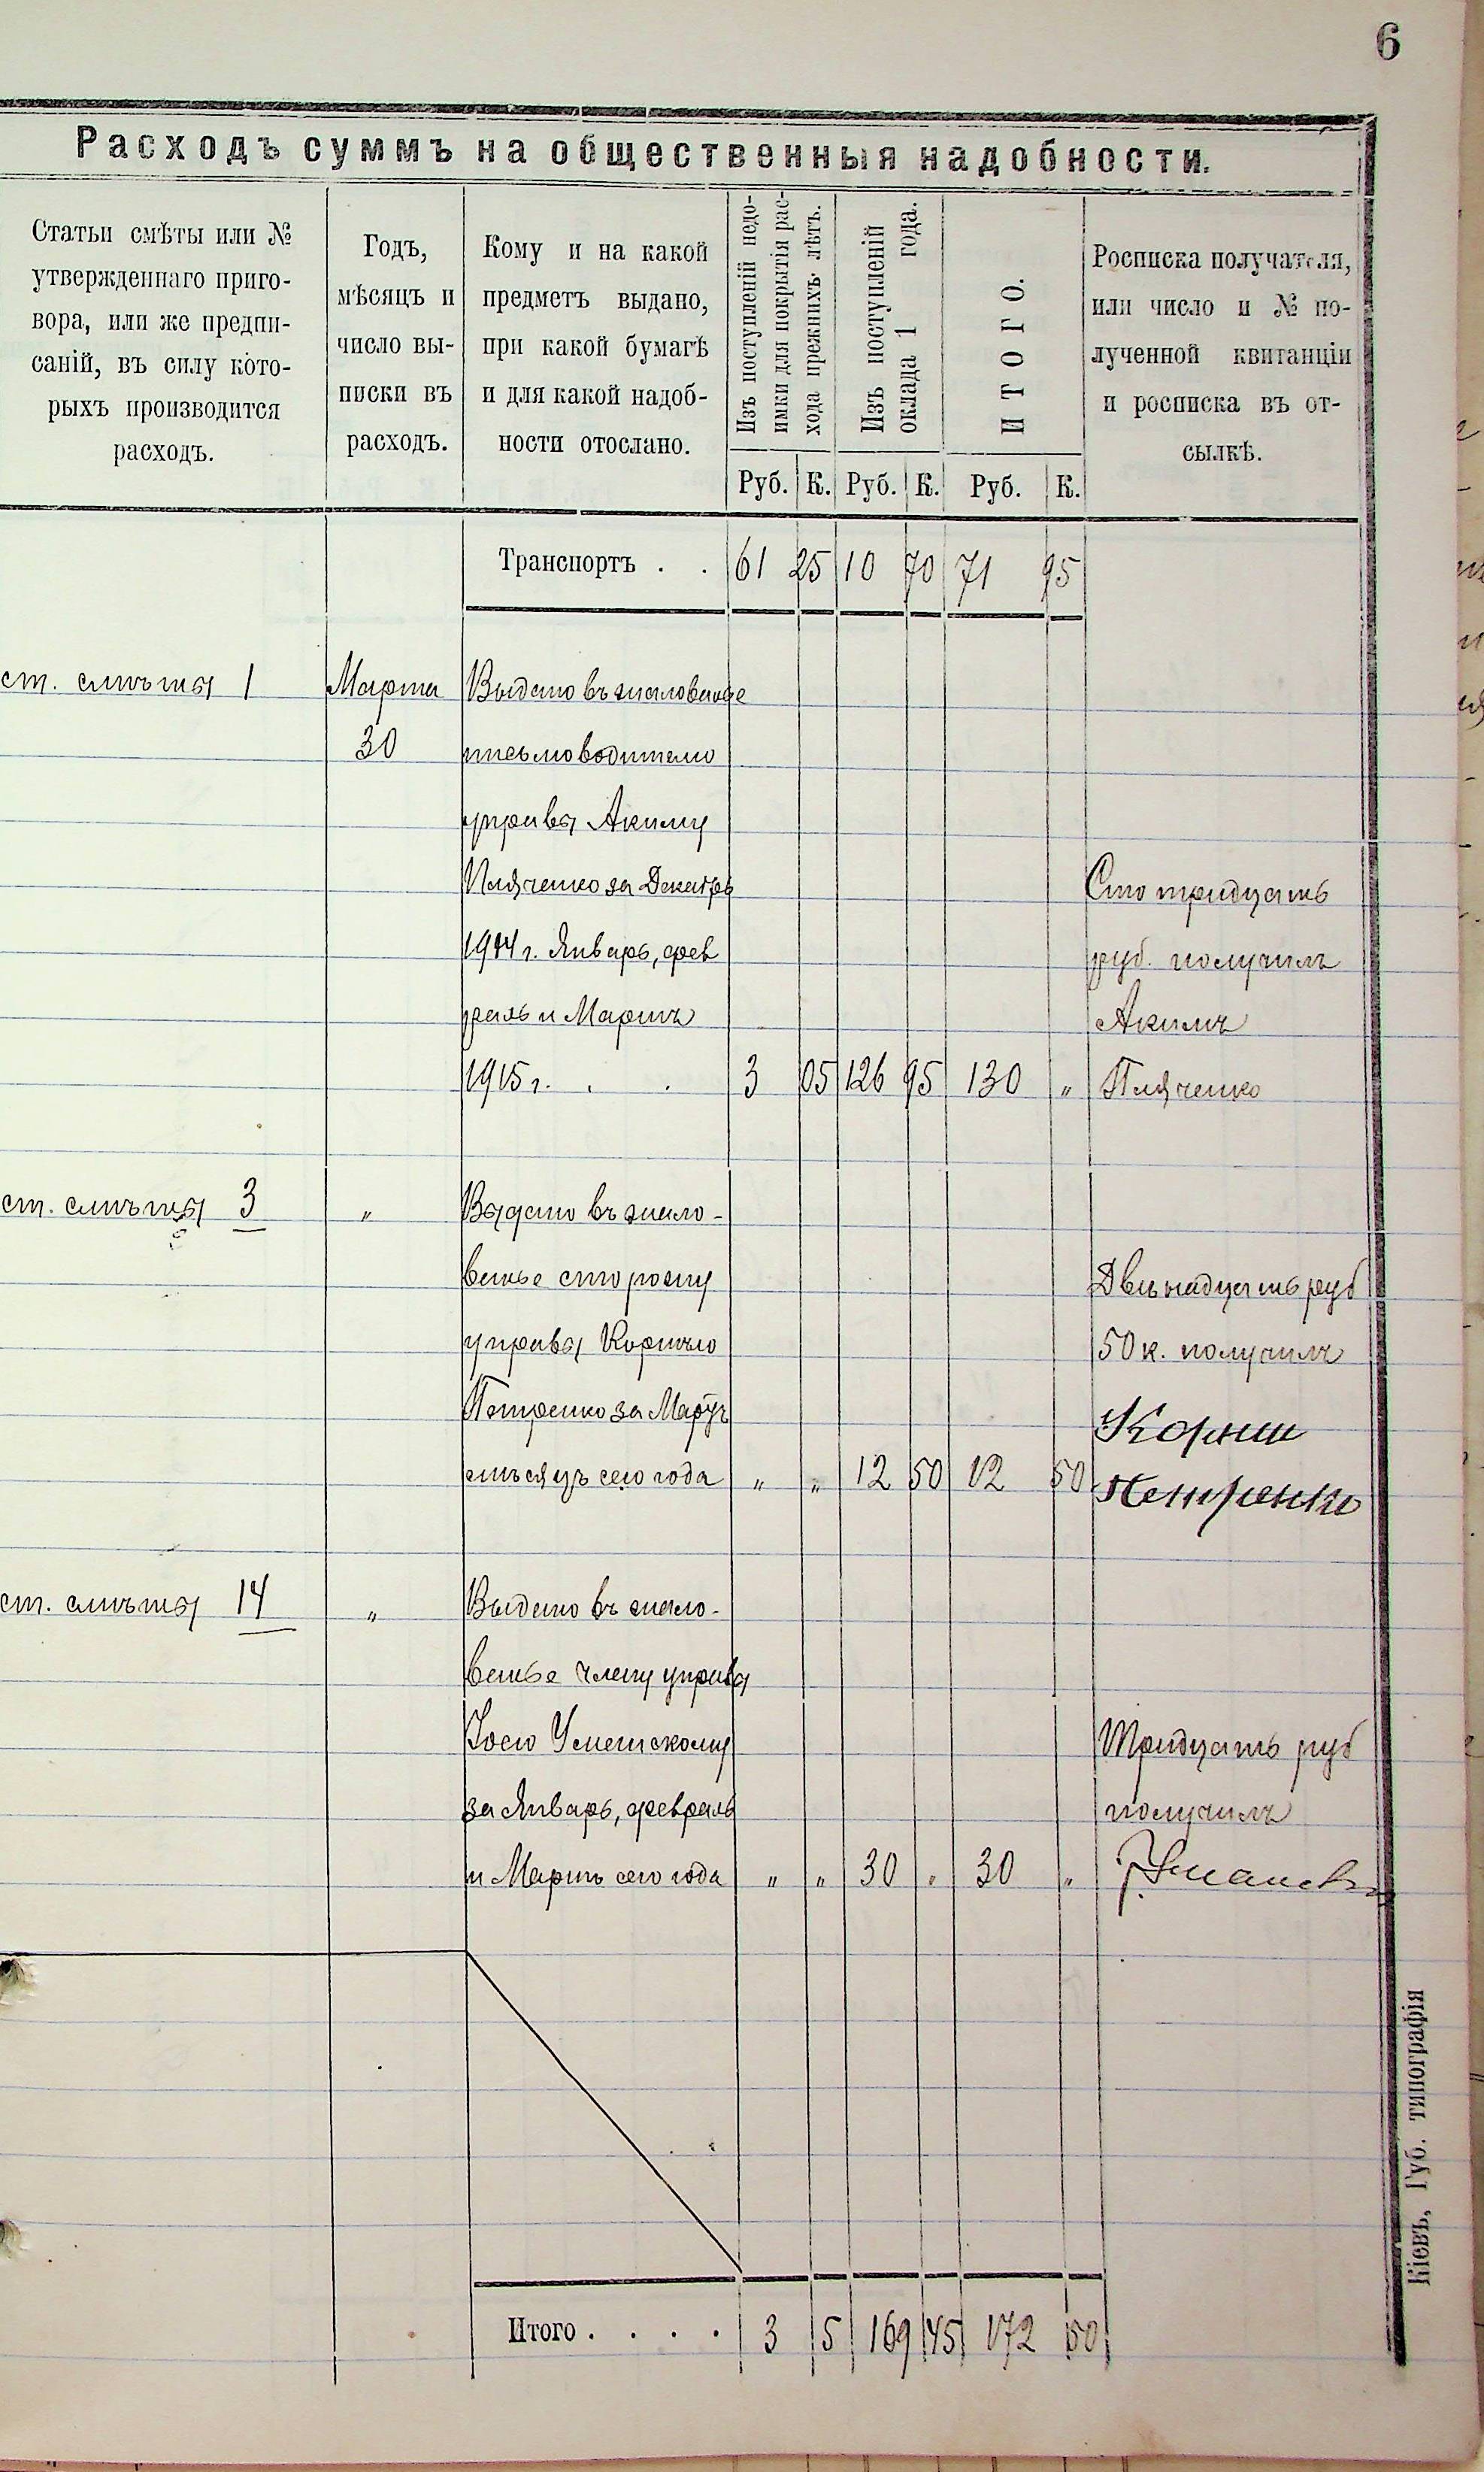 6
Расходъ суммъ на общественныя надобности.
Статьи смѣты или №
утвержденнаго приго-
вора, или же предпи-
саній, въ силу кото-
рыхъ производится
расходъ.
Годъ,
мѣсяцъ и
число вы-
писки въ
расходъ.
Кому и на какой
предметъ выдано,
при какой бумагѣ
и для какой надоб-
ности отослано.
Изъ поступленій недо-
имки для покрытія рас-
хода прежнихъ лѣтъ.
Изъ поступленій
оклада 1 года.
ИТОГО.
Росписка получателя,
или число и № по-
лученной квитанціи
и росписка въ от-
сылкѣ.
Руб. К. Руб. К. Руб. К.
Транспортъ . . 61 25 10 70 71 95
ст. смѣты 1 Марта Выдано въ жалованье
30 письмоводителю
управы Акиму
Пляченко за Декабрь
Сто тридцать
1914 г. Январь, фев
руб. получилъ
раль и Мартъ
Акимъ
1915 г. . . 3 05 126 95 130 " Пляченко
ст. смѣты 3 " Выдано въ жало-
ванье сторожу
Двѣнадцать руб
управы Корнѣю
50 к. получилъ
Петренко за Мартъ
Корній
мѣсяцъ сего года " " 12 50 12 50 Петренко
ст. смѣты 14 " Выдано въ жало-
ванье члену управы
Тридцать руб
за Январь, февраль
получилъ
и Мартъ сего года " " 30 " 30 "
Итого . . . . 3 5 169 45 172 50
Кіевъ, Губ. типографія